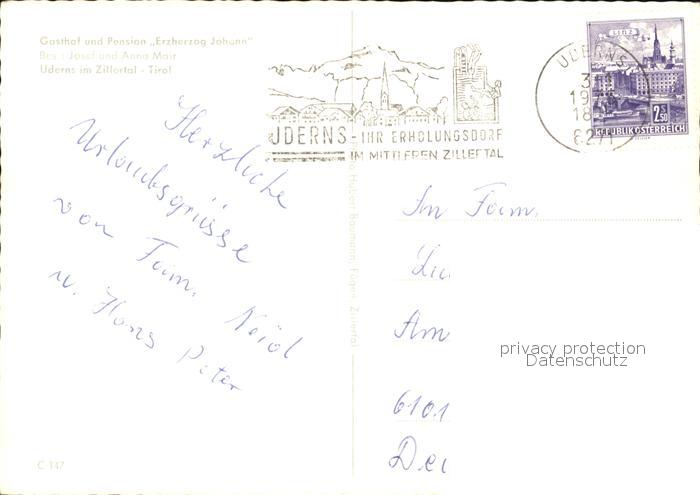 Gasthof und Pension „Erzherzog Johann"
Bes.: Josef und Anna Mair
Uderns im Zillertal - Tirol
Herzliche
Urlaubsgrüsse
von Fam. Neidl
u. Hans Peter
C 147
Hubert Baumann, Fügen, Zillertal
UDERNS - IHR ERHOLUNGSDORF
IM MITTLEREN ZILLERTAL
UDERNS
6271
LINZ
2.50
REPUBLIK ÖSTERREICH
An Fam.
Am
6101
privacy protection
Datenschutz